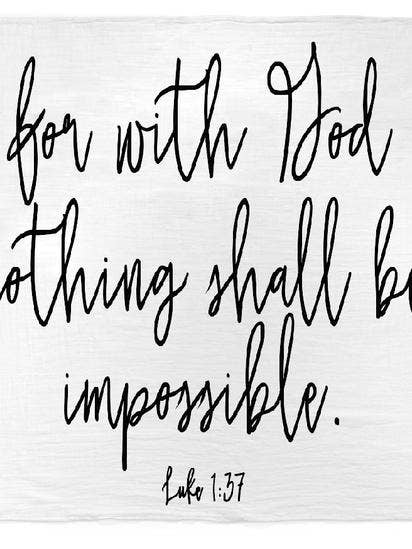 for with God
othing shall be
impossible.
Luke 1:37